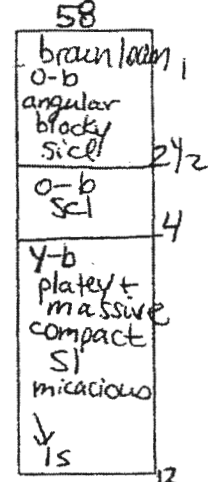 58
brown loam 1
o-b
angular
blocky
sicl
2 1/2
o-b
scl
4
y-b
platey +
massive
compact
sl
micacious
↓
ls
12